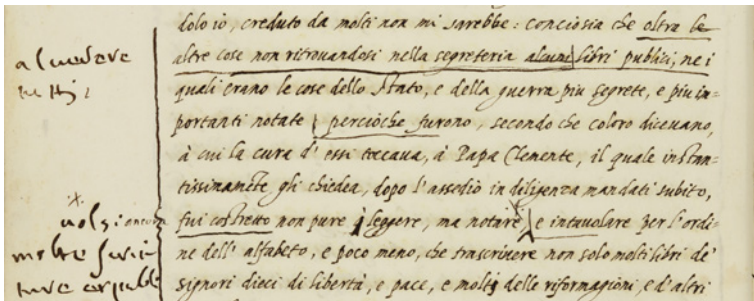 dolo io, creduto da molti non mi sarebbe: conciosia che oltra le
altre cose non ritrovandosi nella segreteria alcuni libri publici, ne i
quali erano le cose dello Stato, e della guerra piu segrete, e piu im-
portanti notate percioche furono, secondo che coloro dicevano,
à cui la cura d'essi toccava, à Papa Clemente, il quale instan-
tissinamēte gli chiedea, dopo l'assedio in diligenza mandati subito,
fui costretto non pure à leggere, ma notare, e intavolare per l'ordi-
ne dell'alfabeto, e poco meno, che trascrivere non solo molti libri de'
signori dieci di libertà, e pace, e molti delle riformagioni, e d'altri
molte